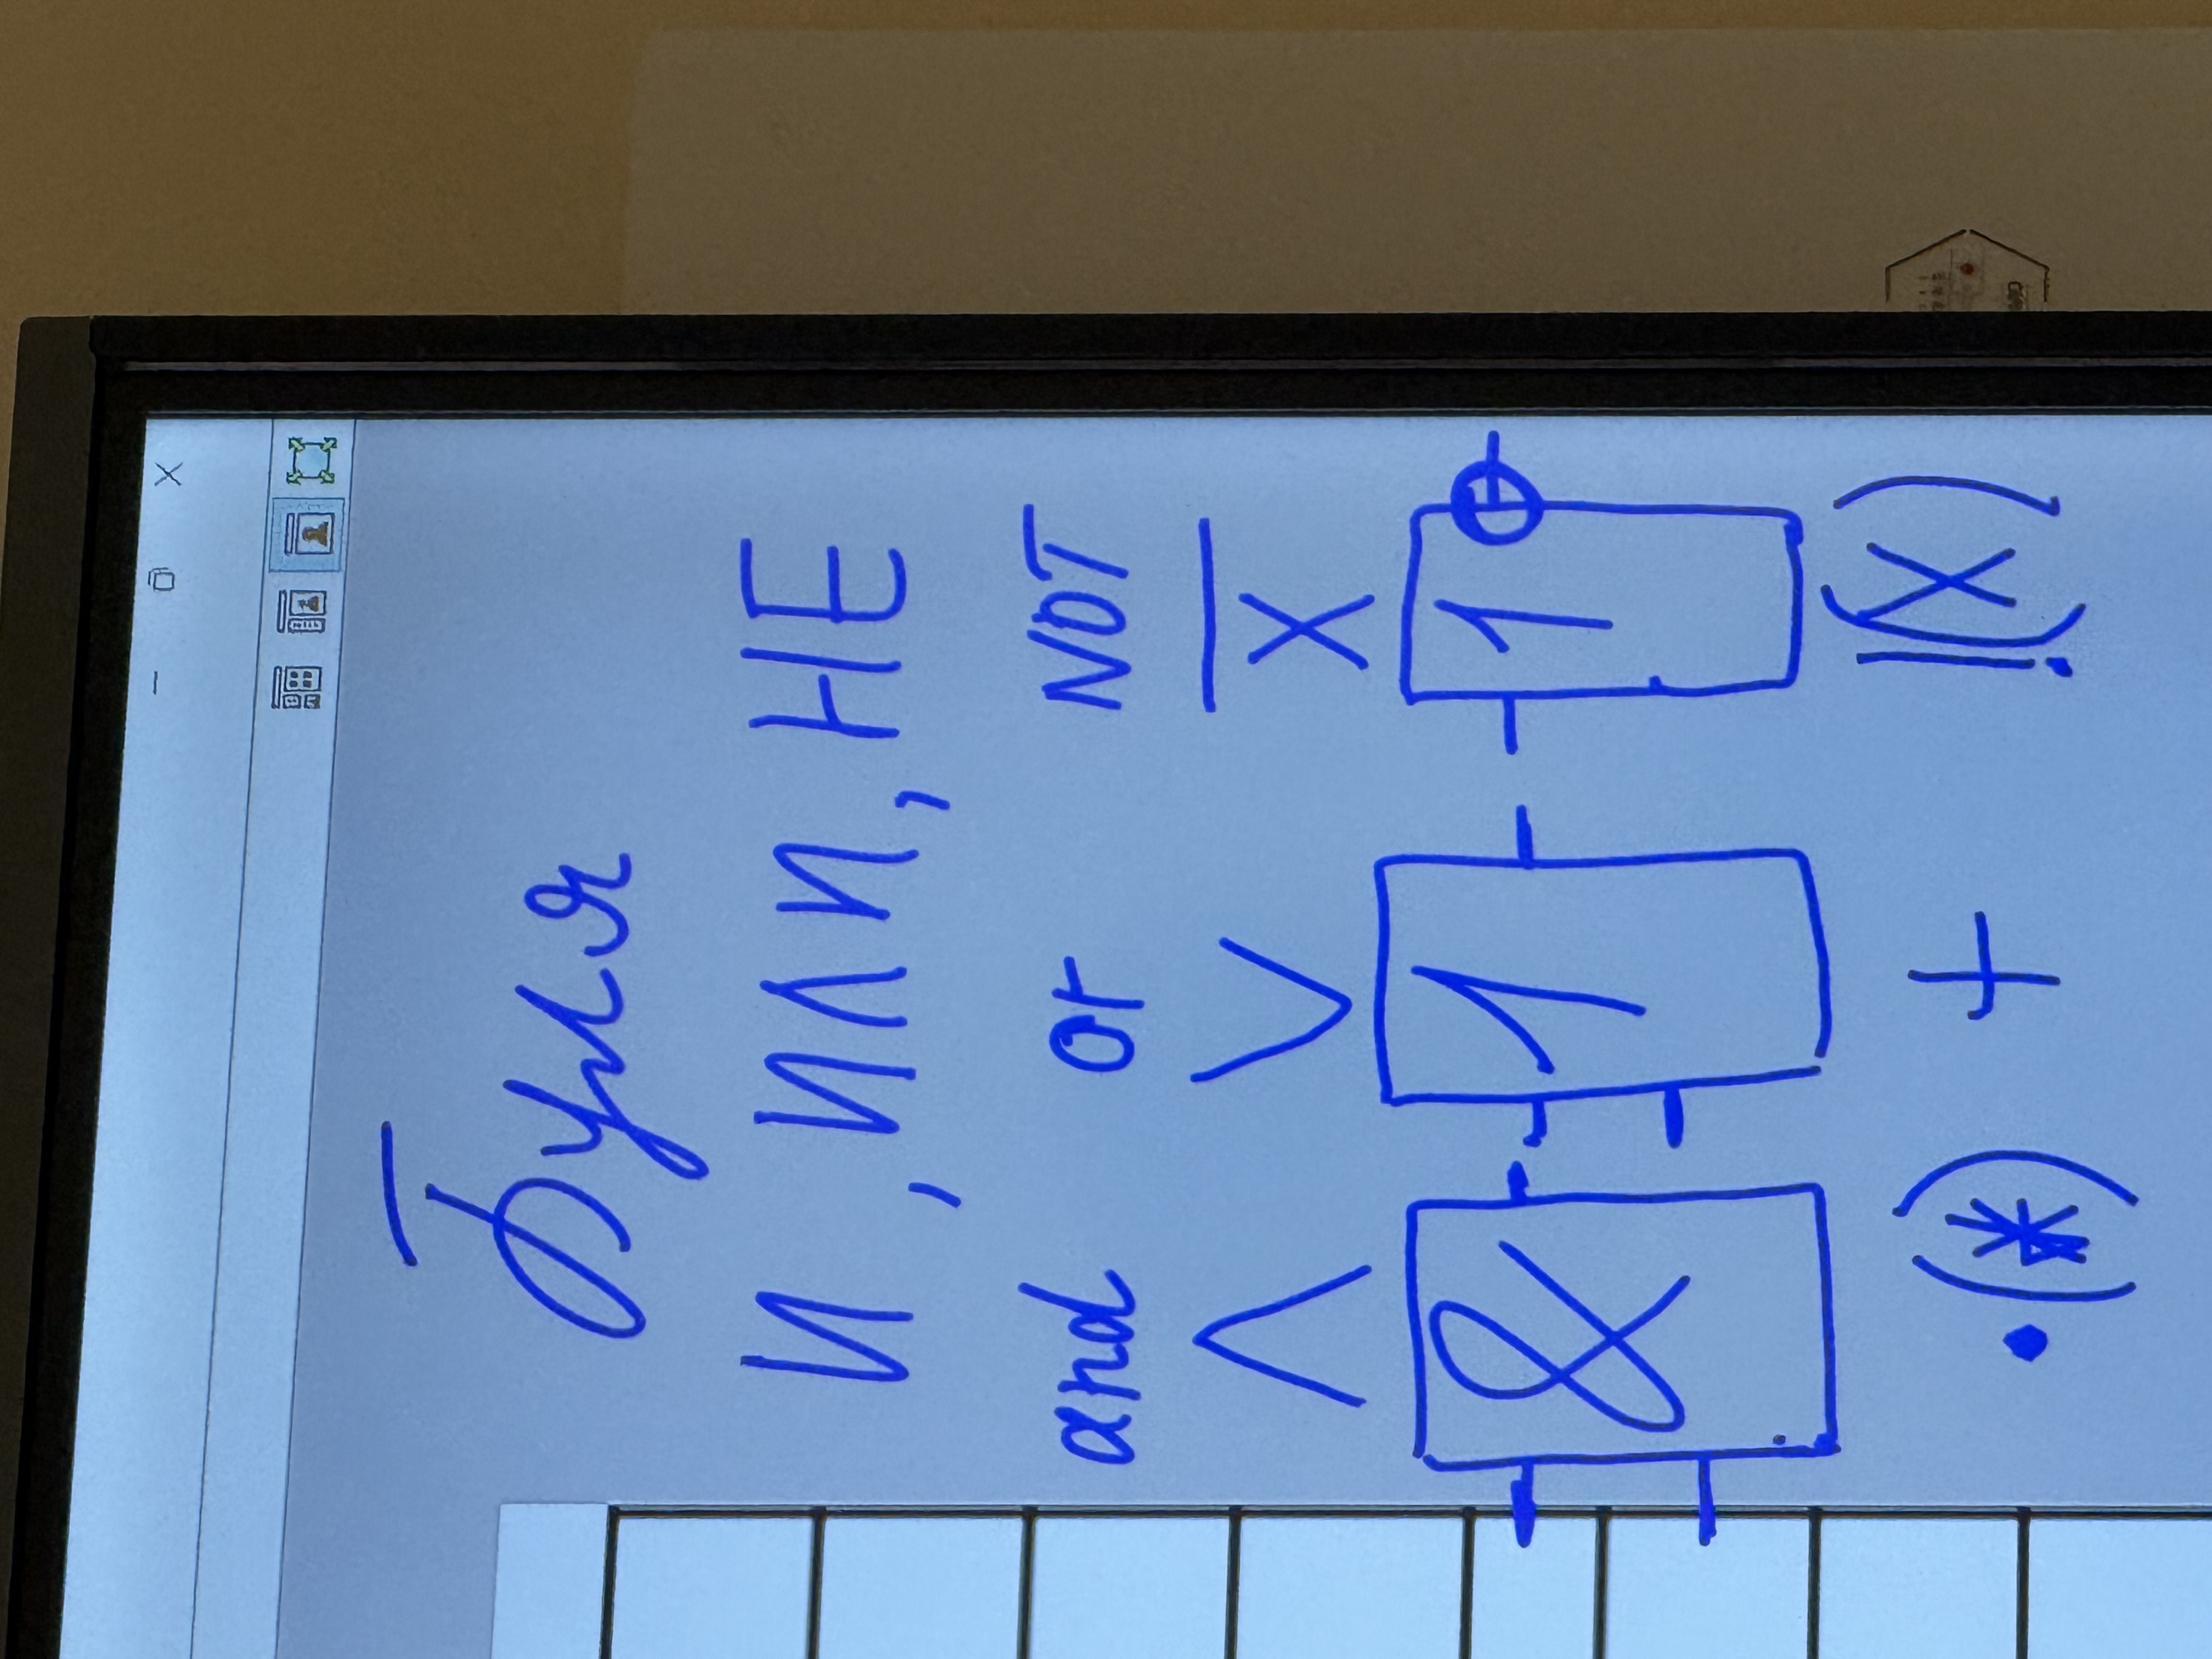 Буля
И, ИЛИ, НЕ
and or NOT
∧ ∨ X̅
& 1 1
·(*) + !(X)